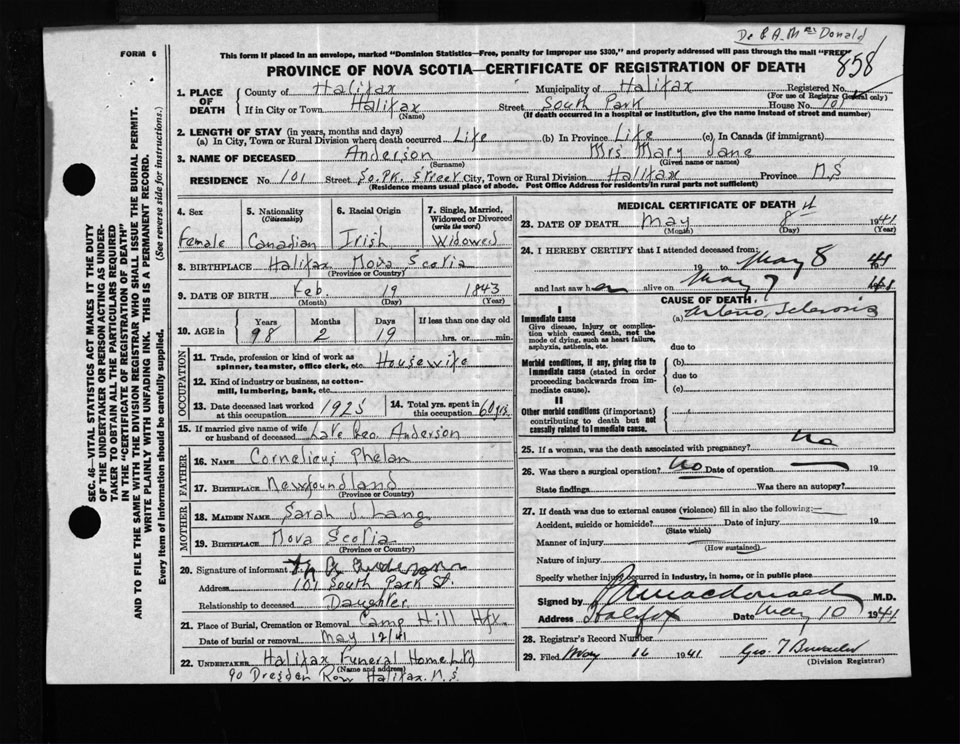 Dr. P. A. McDonald
FORM 6
This form if placed in an envelope, marked "Dominion Statistics—Free, penalty for improper use $300," and properly addressed will pass through the mail "FREE"
858
PROVINCE OF NOVA SCOTIA—CERTIFICATE OF REGISTRATION OF DEATH
SEC. 46—VITAL STATISTICS ACT MAKES IT THE DUTY
OF THE UNDERTAKER OR PERSON ACTING AS UNDER-
TAKER TO OBTAIN ALL THE PARTICULARS REQUIRED
IN THE "CERTIFICATE OF REGISTRATION OF DEATH"
AND TO FILE THE SAME WITH THE DIVISION REGISTRAR WHO SHALL ISSUE THE BURIAL PERMIT.
WRITE PLAINLY WITH UNFADING INK. THIS IS A PERMANENT RECORD.
Every item of information should be carefully supplied. (See reverse side for instructions.)
1. PLACE OF DEATH
County of Halifax Municipality of Halifax Registered No.
(For use of Registrar General only)
If in City or Town Halifax Street South Park House No. 101
(Name) (If death occurred in a hospital or institution, give the name instead of street and number)
2. LENGTH OF STAY (in years, months and days)
(a) In City, Town or Rural Division where death occurred Life (b) In Province Life (c) In Canada (if immigrant)
3. NAME OF DECEASED Anderson Mrs Mary Jane
(Surname) (Given name or names)
RESIDENCE No. 101 Street So. Pk. Street City, Town or Rural Division Halifax Province N.S
(Residence means usual place of abode. Post Office Address for residents in rural parts not sufficient)
4. Sex Female
5. Nationality (Citizenship) Canadian
6. Racial Origin Irish
7. Single, Married, Widowed or Divorced (write the word) Widowed
8. BIRTHPLACE Halifax Nova Scotia
(Province or Country)
9. DATE OF BIRTH Feb. 19 1843
(Month) (Day) (Year)
10. AGE in Years 98 Months 2 Days 19 If less than one day old
hrs. or min.
OCCUPATION
11. Trade, profession or kind of work as spinner, teamster, office clerk, etc. Housewife
12. Kind of industry or business, as cotton-mill, lumbering, bank, etc.
13. Date deceased last worked at this occupation 1925
14. Total yrs. spent in this occupation 60 yrs.
15. If married give name of wife or husband of deceased Late Geo. Anderson
FATHER
16. NAME Cornelieus Phelan
17. BIRTHPLACE Newfoundland
(Province or Country)
MOTHER
18. MAIDEN NAME Sarah J. Lang
19. BIRTHPLACE Nova Scotia
(Province or Country)
20. Signature of informant Anderson
Address 101 South Park St.
Relationship to deceased Daughter
21. Place of Burial, Cremation or Removal Camp Hill Hfx.
Date of burial or removal May 12/41
22. UNDERTAKER Halifax Funeral Home Ltd
(Name and address)
90 Dresden Row Halifax. N.S.
MEDICAL CERTIFICATE OF DEATH
23. DATE OF DEATH May 8th 1941
(Month) (Day) (Year)
24. I HEREBY CERTIFY that I attended deceased from:
19 to May 8 1941
and last saw her alive on May 7 1941
CAUSE OF DEATH
Immediate cause
Give disease, injury or complication which caused death, not the mode of dying, such as heart failure, asphyxia, asthenia, etc.
(a) Arterio Sclerosis
due to
Morbid conditions, if any, giving rise to immediate cause (stated in order proceeding backwards from immediate cause).
(b)
due to
(c)
II
Other morbid conditions (if important) contributing to death but not causally related to immediate cause.
25. If a woman, was the death associated with pregnancy? No
26. Was there a surgical operation? No Date of operation 19
State findings Was there an autopsy?
27. If death was due to external causes (violence) fill in also the following:
Accident, suicide or homicide? Date of injury 19
(State which)
Manner of injury
(How sustained)
Nature of injury
Specify whether injury occurred in industry, in home, or in public place
Signed by P A Macdonald M.D.
Address Halifax Date May 10 1941
28. Registrar's Record Number
29. Filed May 16 1941 Geo. T
(Division Registrar)